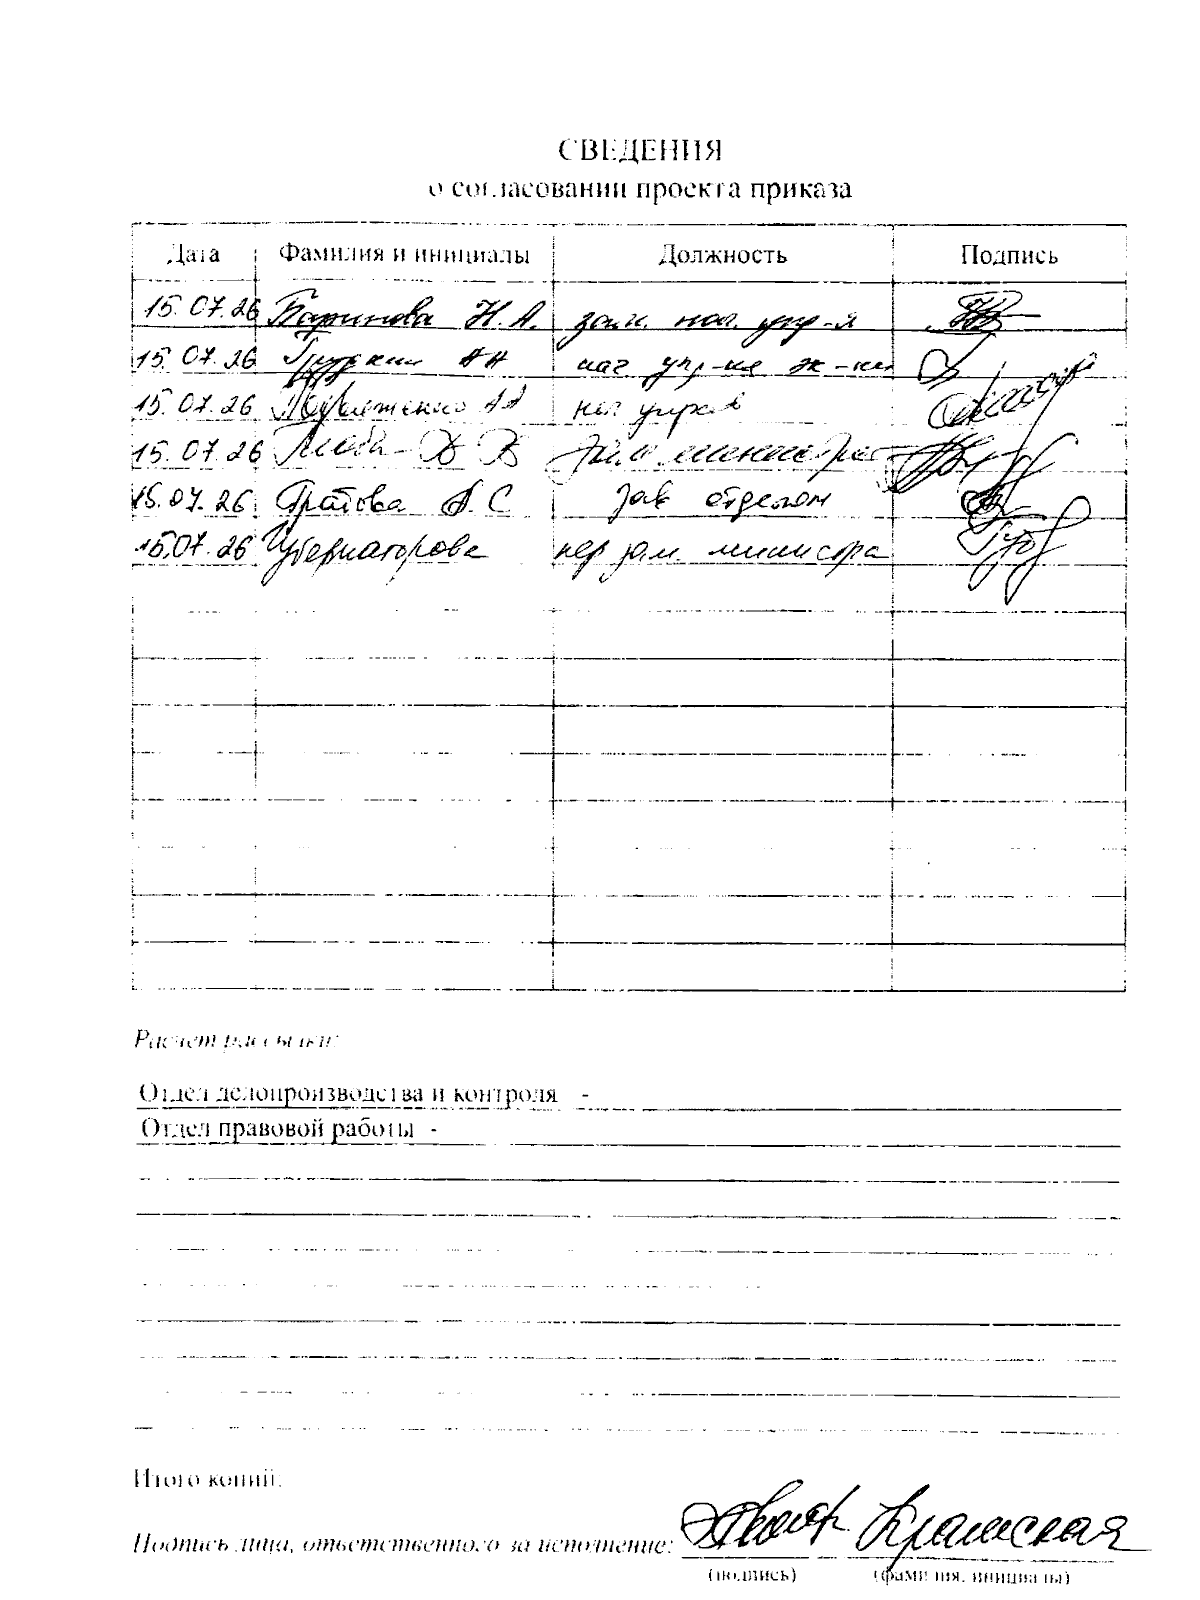 СВЕДЕНИЯ
о согласовании проекта приказа
Дата Фамилия и инициалы Должность Подпись
15.07.26 Баринова Н.А. зам. нач. упр-я
15.07.26 А Н нач упр-ия
15.07.26 А А нач управ
15.07.26 В В Зам министра
15.07.26 С Зав отделом
15.07.26 Губернаторова пер зам. министра
Расчет рассылки:
Отдел делопроизводства и контроля -
Отдел правовой работы -
Итого копий:
Подпись лица, ответственного за исполнение: Крамская
(подпись) (фамилия, инициалы)